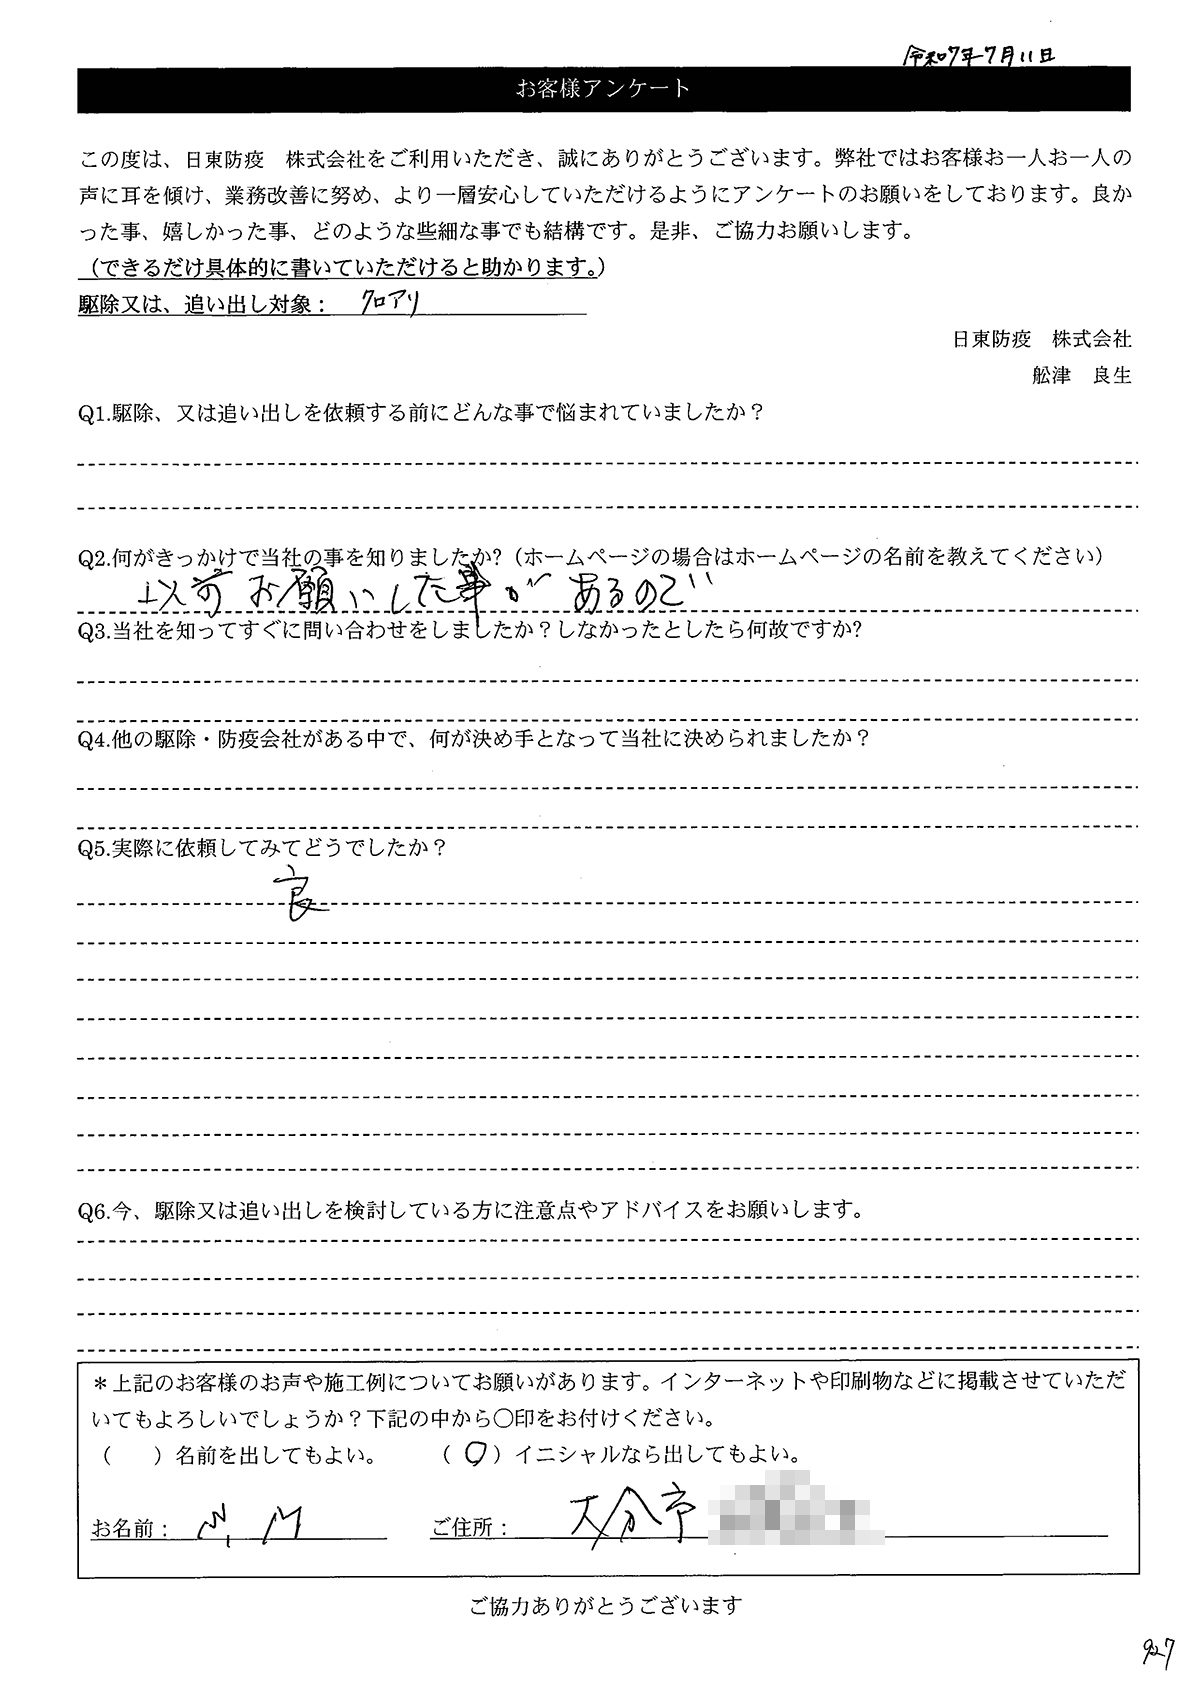 令和7年7月11日
お客様アンケート
この度は、日東防疫　株式会社をご利用いただき、誠にありがとうございます。弊社ではお客様お一人お一人の
声に耳を傾け、業務改善に努め、より一層安心していただけるようにアンケートのお願いをしております。良か
った事、嬉しかった事、どのような些細な事でも結構です。是非、ご協力お願いします。
（できるだけ具体的に書いていただけると助かります。）
駆除又は、追い出し対象： クロアリ
日東防疫　株式会社
舩津　良生
Q1.駆除、又は追い出しを依頼する前にどんな事で悩まれていましたか？
Q2.何がきっかけで当社の事を知りましたか?（ホームページの場合はホームページの名前を教えてください）
以前お願いした事があるので
Q3.当社を知ってすぐに問い合わせをしましたか？しなかったとしたら何故ですか?
Q4.他の駆除・防疫会社がある中で、何が決め手となって当社に決められましたか？
Q5.実際に依頼してみてどうでしたか？
良
Q6.今、駆除又は追い出しを検討している方に注意点やアドバイスをお願いします。
＊上記のお客様のお声や施工例についてお願いがあります。インターネットや印刷物などに掲載させていただ
いてもよろしいでしょうか？下記の中から〇印をお付けください。
（　　）名前を出してもよい。　　（ ○ ）イニシャルなら出してもよい。
お名前： M, M　　ご住所： 大分市
ご協力ありがとうございます
927